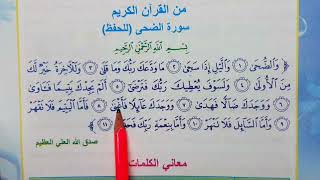 من القرآن الكريم
سورة الضحى (للحفظ)
بِسْمِ اللَّهِ الرَّحْمَٰنِ الرَّحِيمِ
وَالضُّحَىٰ ١ وَاللَّيْلِ إِذَا سَجَىٰ ٢ مَا وَدَّعَكَ رَبُّكَ وَمَا قَلَىٰ ٣ وَلَلْآخِرَةُ خَيْرٌ لَّكَ
مِنَ الْأُولَىٰ ٤ وَلَسَوْفَ يُعْطِيكَ رَبُّكَ فَتَرْضَىٰ ٥ أَلَمْ يَجِدْكَ يَتِيمًا فَآوَىٰ
٦ وَوَجَدَكَ ضَالًّا فَهَدَىٰ ٧ وَوَجَدَكَ عَائِلًا فَأَغْنَىٰ ٨ فَأَمَّا الْيَتِيمَ فَلَا تَقْهَرْ
٩ وَأَمَّا السَّائِلَ فَلَا تَنْهَرْ ١٠ وَأَمَّا بِنِعْمَةِ رَبِّكَ فَحَدِّثْ ١١
صدق الله العلي العظيم
معاني الكلمات